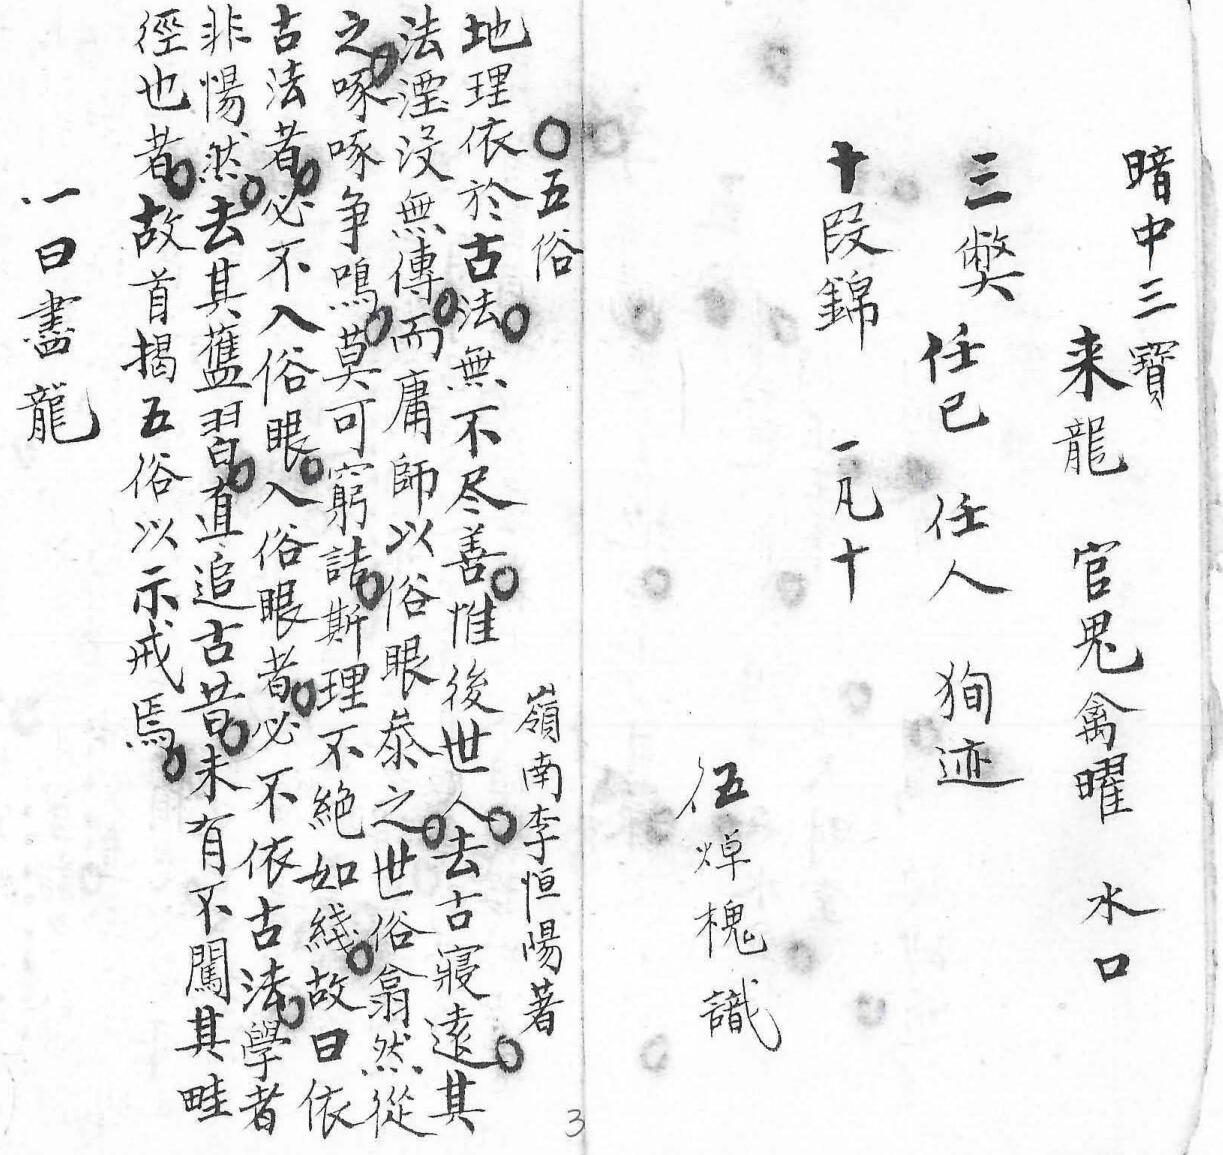 暗中三寶
来龍 官鬼禽曜 水口
三獘 任己 任人 狥迹
十段錦 一凡十
伍焯槐識
〇五俗
嶺南李恒陽著
地理依於古法無不尽善惟後世人去古寢遠其
法湮没無傳而庸師以俗眼叅之世俗翕然從
之啄啄争鳴莫可窮詰斯理不絕如綫故曰依
古法者必不入俗眼入俗眼者必不依古法學者
非惕然去其舊習直追古昔未有不闖其畦
徑也者故首揭五俗以示戒焉
一曰畵龍
3